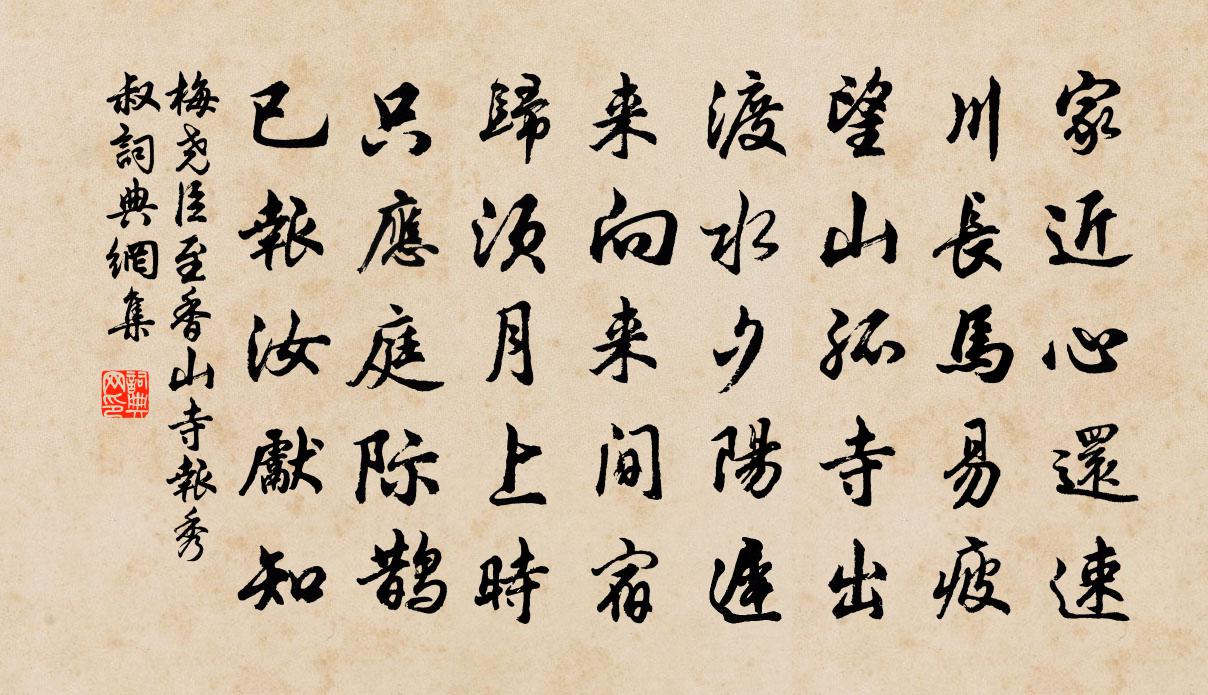 家近心還速
川長馬易疲
望山孤寺出
渡水夕陽遲
来向来間宿
歸須月上時
只應庭际鹊
已報汝獻知
梅堯臣至香山寺報秀
叔詞典網集
詞典
网印